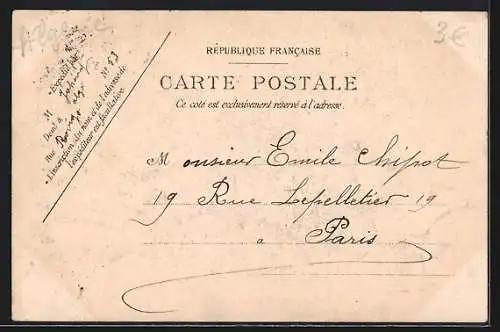 Algérie
3€
RÉPUBLIQUE FRANÇAISE
CARTE POSTALE
Ce côté est exclusivement réservé à l'adresse.
Expéditeur
M
Demt à
Rue Rovigo Nº 13
L'inscription du nom et de l'adresse de
l'expéditeur est facultative
Monsieur Emile Chipot
19 Rue Lepelletier 19
à Paris